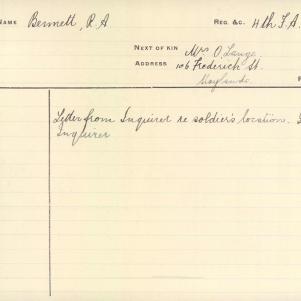 NAME Bennett, R.A REG. &C. 4th F.A.
NEXT OF KIN Mrs O. Lange,
ADDRESS 106 Frederick St.
Maylands
Letter from Inquirer re soldier's location.
Inquirer